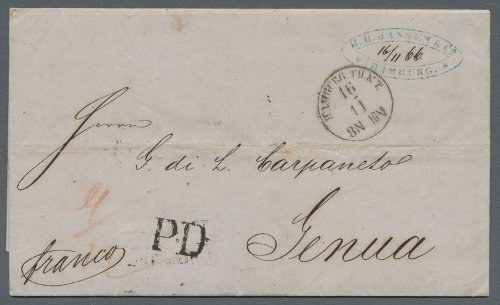 H. H. JANSSEN & Co.
16/11 66
HAMBURG.
HAMBURG TH.&T.
16
11
8N 10N
Herrn
G. di L. Carpaneto
PD
Genua
franco